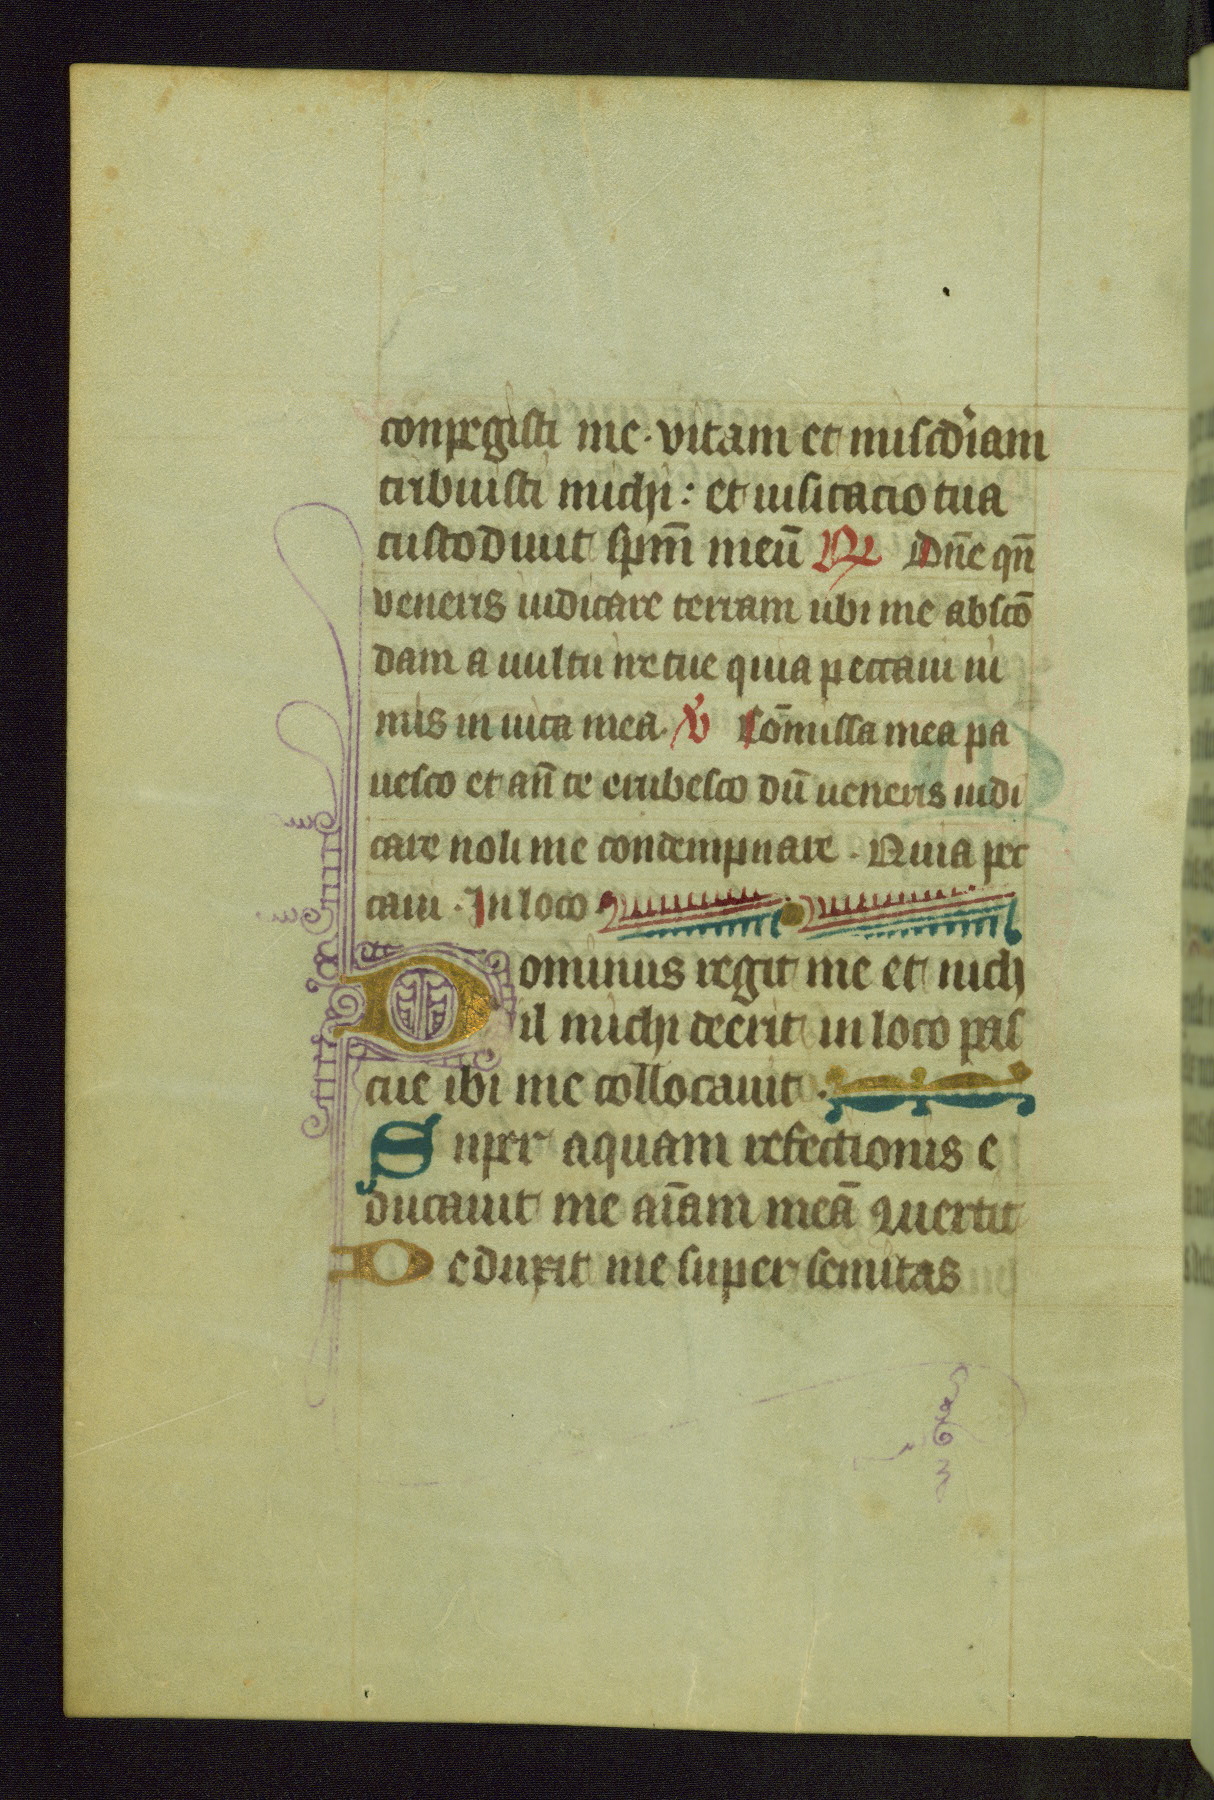 conpegisti me. vitam et miscd'iam
tribuisti michi: et uisitacio tua
custodiuit sp̄m̄ meū R̷ Dn̄e qn̄
veneris iudicare terram ubi me abscō
dam a uultu ire tue quia peccaui ni
mis in uita mea. V̷ Cōmissa mea pa
uesco et an̄ te erubesco dū ueneris iudi
care noli me condempnare. Quia pec
caui. In loco
Dominus regit me et nich
il michi deerit in loco pas
cue ibi me collocauit.
Super aquam refectionis e
ducauit me aīam meā ꝯuertit
Deduxit me super semitas